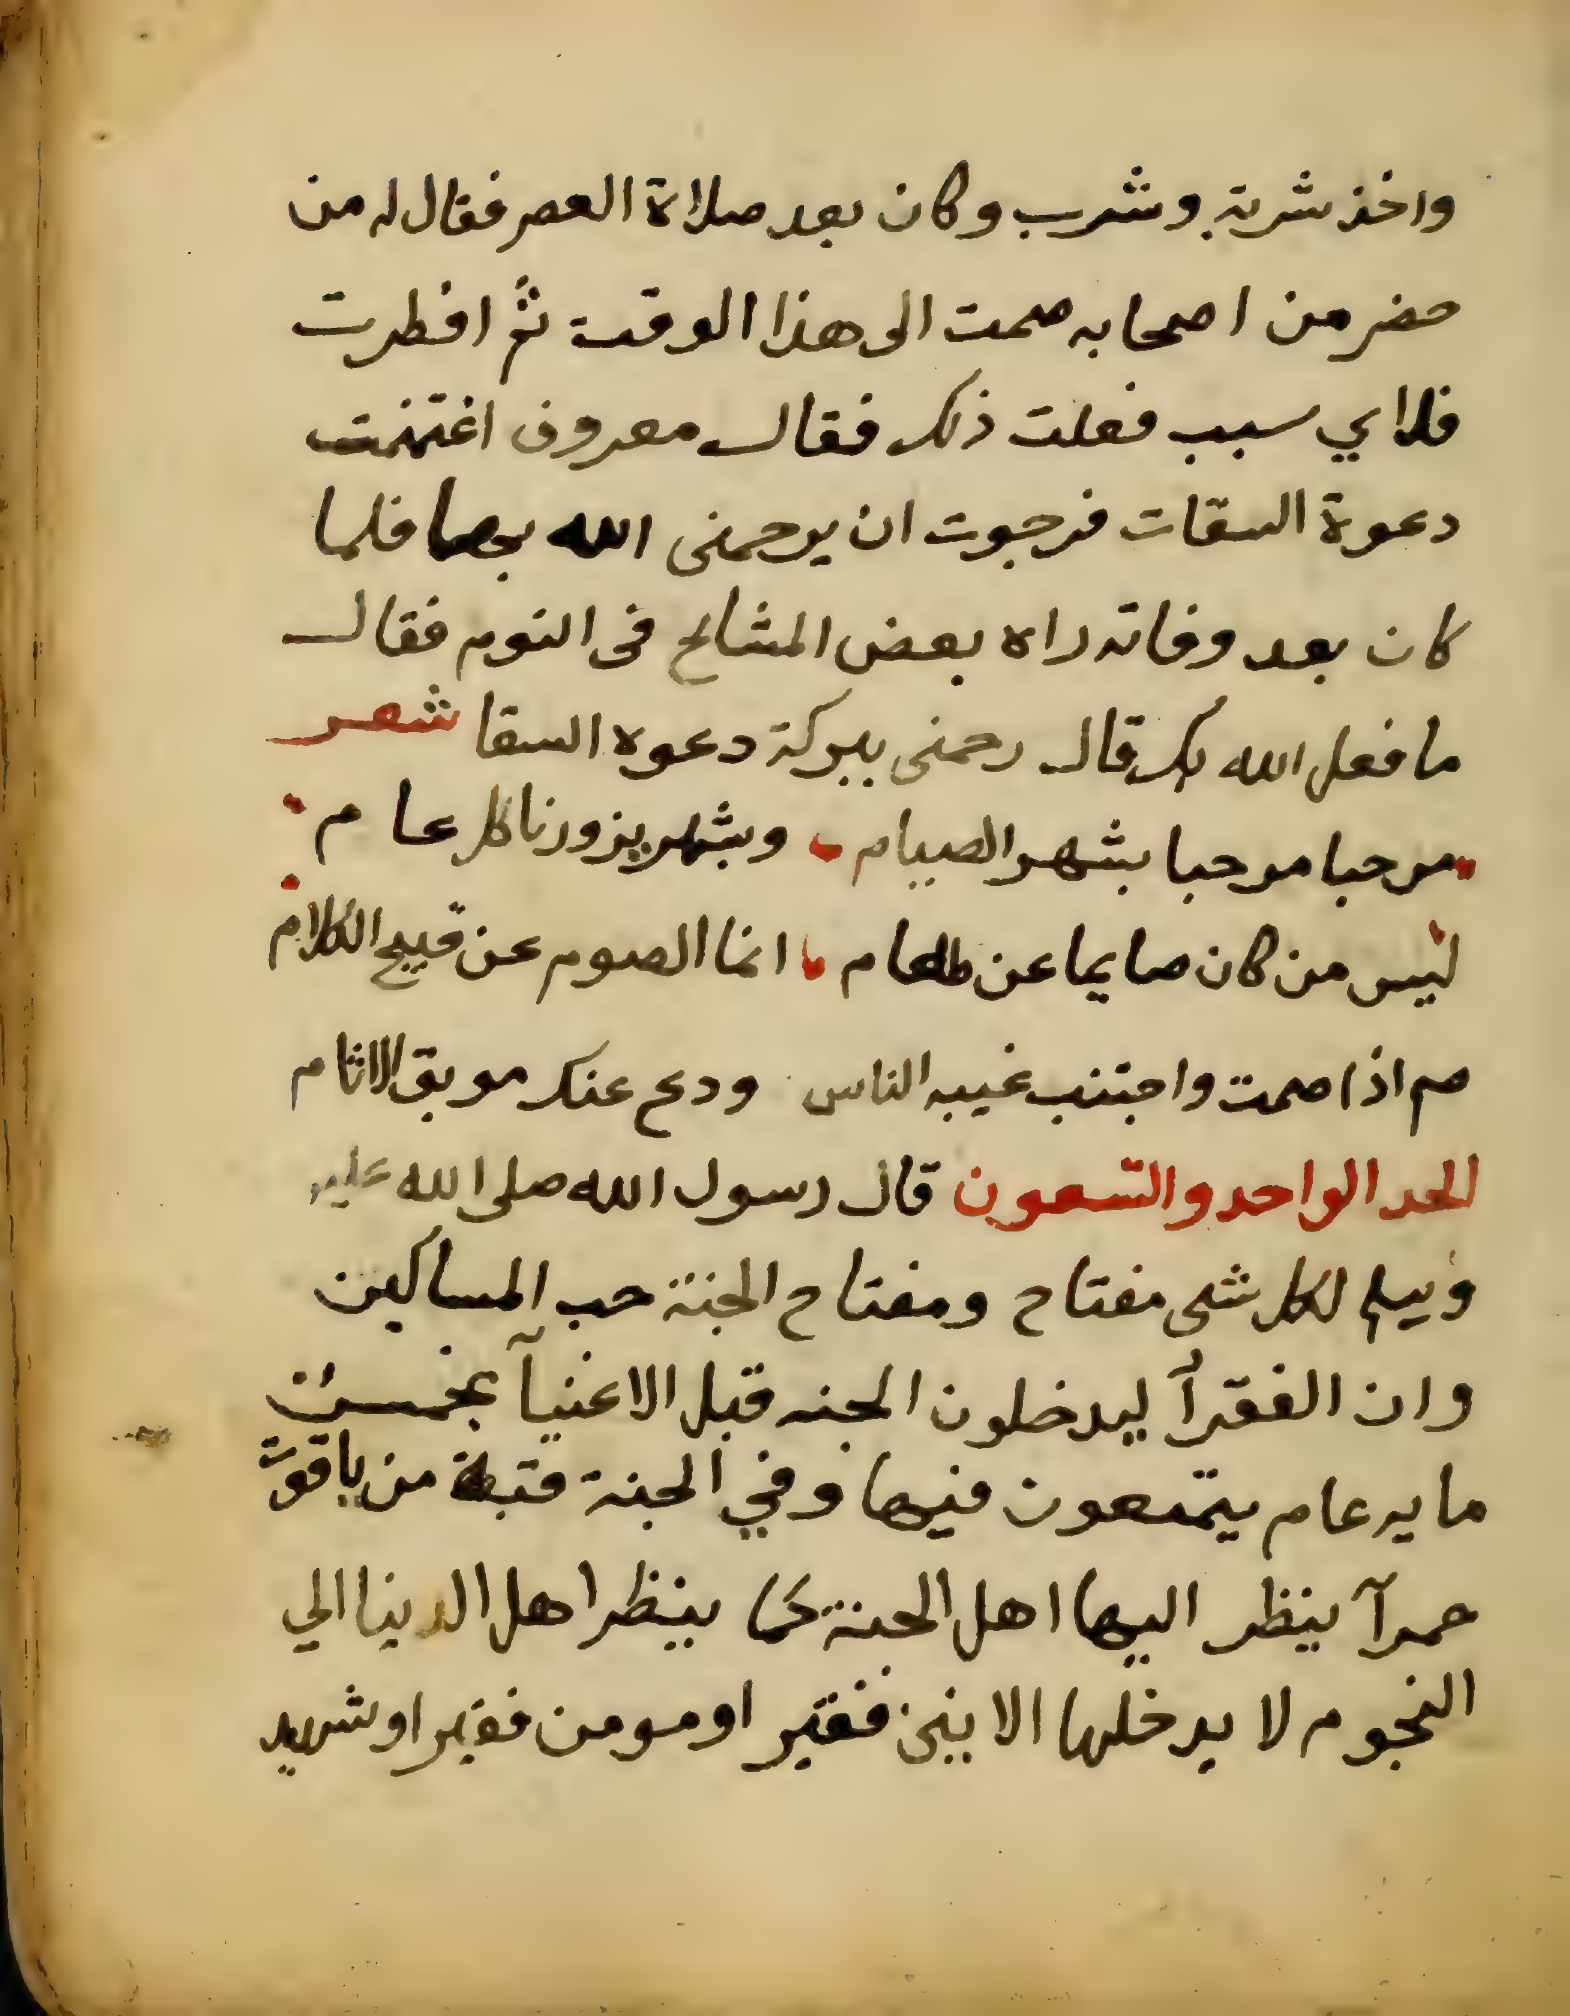 واخذ شربة وشرب وكان بعد صلاة العصر فقال له من
حضر من اصحابه صمت الى هذا الوقت ثم افطرت
فلاي سبب فعلت ذلك فقال معروف اغتنمت
دعوة السقات فرجوت ان يرحمنى الله بها فلما
كان بعد وفاته راه بعض المشائخ فى النوم فقال
ما فعل الله بك قال رحمنى ببركة دعوه السقا شعر
مرحبا مرحبا بشهر الصيام وبشهر يزورنا كل عام
ليس من كان صايما عن طعام انما الصوم عن قبيح الكلام
صم اذا صمت واجتنب غيبه الناس ودع عنك موبق الاثام
الحد الواحد والتسعون قال رسول الله صلى الله عليه
وسلم لكل شى مفتاح ومفتاح الجنة حب المساكين
وان الفقرآ ليدخلون الجنه قبل الاغنيآ بخمس
مايه عام يتمتعون فيها وفي الجنة قبة من ياقوت
حمرآ ينظر اليها اهل الجنة كما ينظر اهل الدينا الي
النجوم لا يدخلها الا بنى فقير او مومن فقير او شهيد